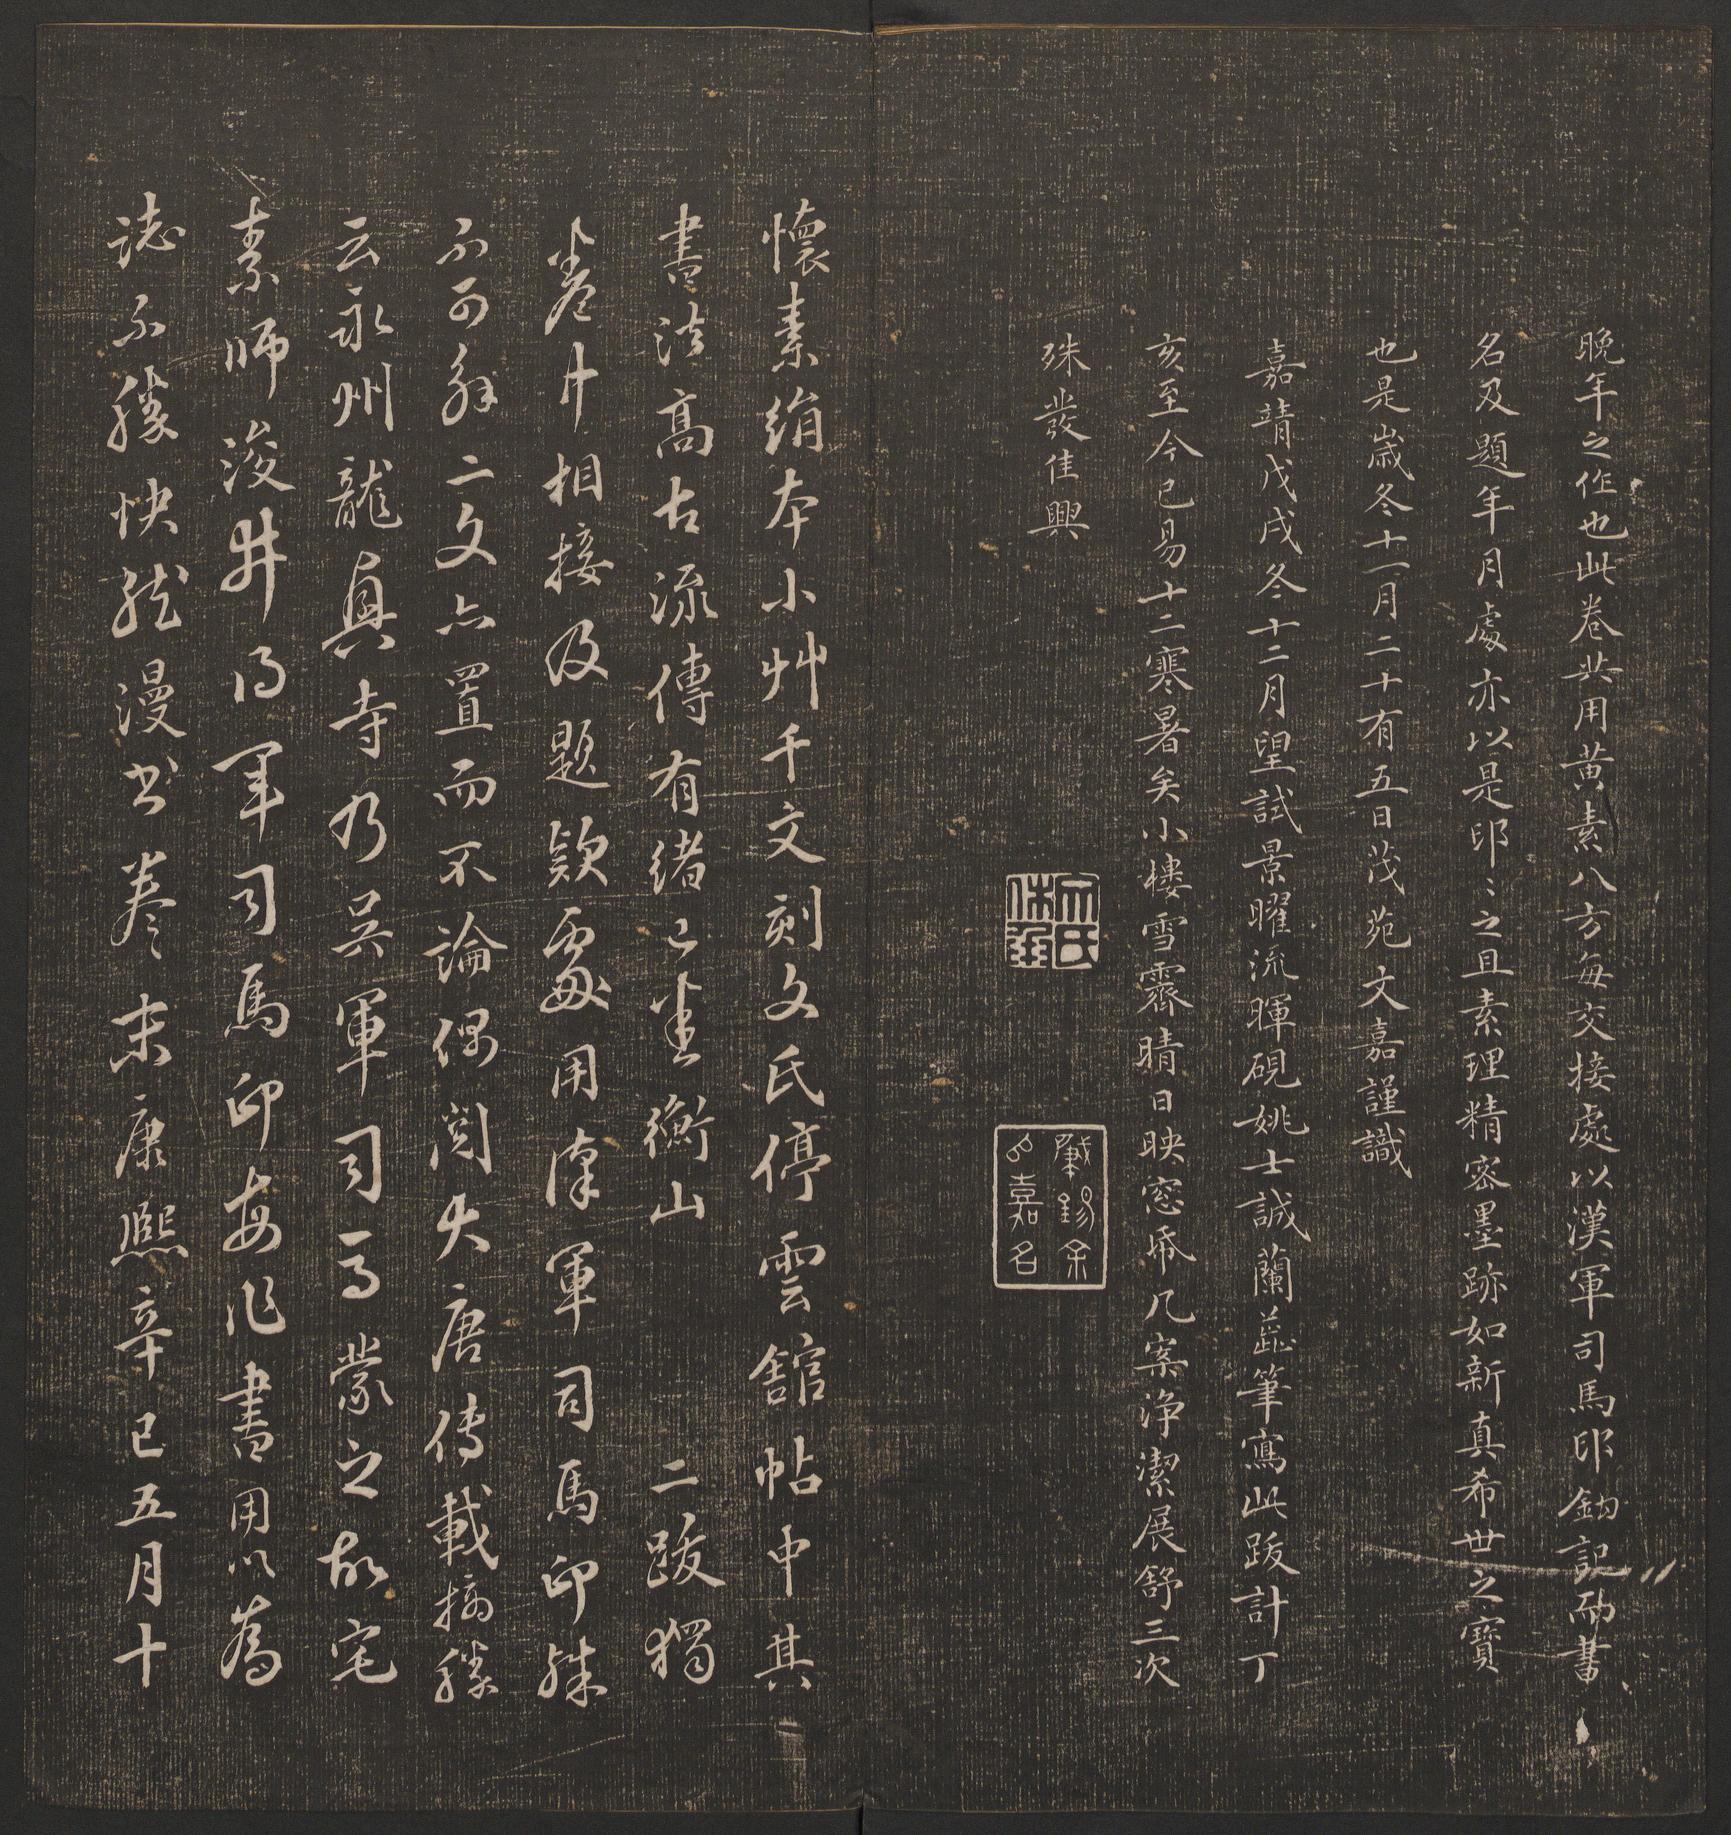 晚年之作也此卷共用黃素八方每交接處以漢軍司馬印鈐記而書
名及題年月處亦以是印〻之且素理精密墨跡如新真希世之寶
也是歲冬十一月二十有五日茂苑文嘉謹識
嘉靖戊戌冬十二月望試景曜流暉硯姚士誠蘭蕊筆寫此跋計丁
亥至今已易十二寒暑矣小樓雪霽晴日映窓帋几案淨潔展舒三次
殊發佳興
文氏休承
肇錫余以嘉名
懷素絹本小艸千文刻文氏停雲館帖中其
書法高古流傳有緒已盡衡山二跋獨
卷中相接及題款處用漢軍司馬印殊
不可解二文亦置而不論偶閱大唐傳載摘勝
云永州龍興寺乃吳軍司馬蒙之故宅
素師浚井得軍司馬印每作書用以為
誌不勝快然漫書卷末康熙辛巳五月十